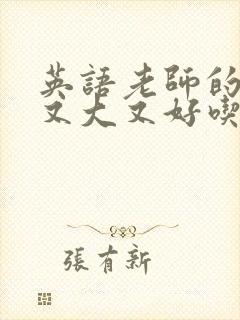 英語老師的
又大又好喫
張有新